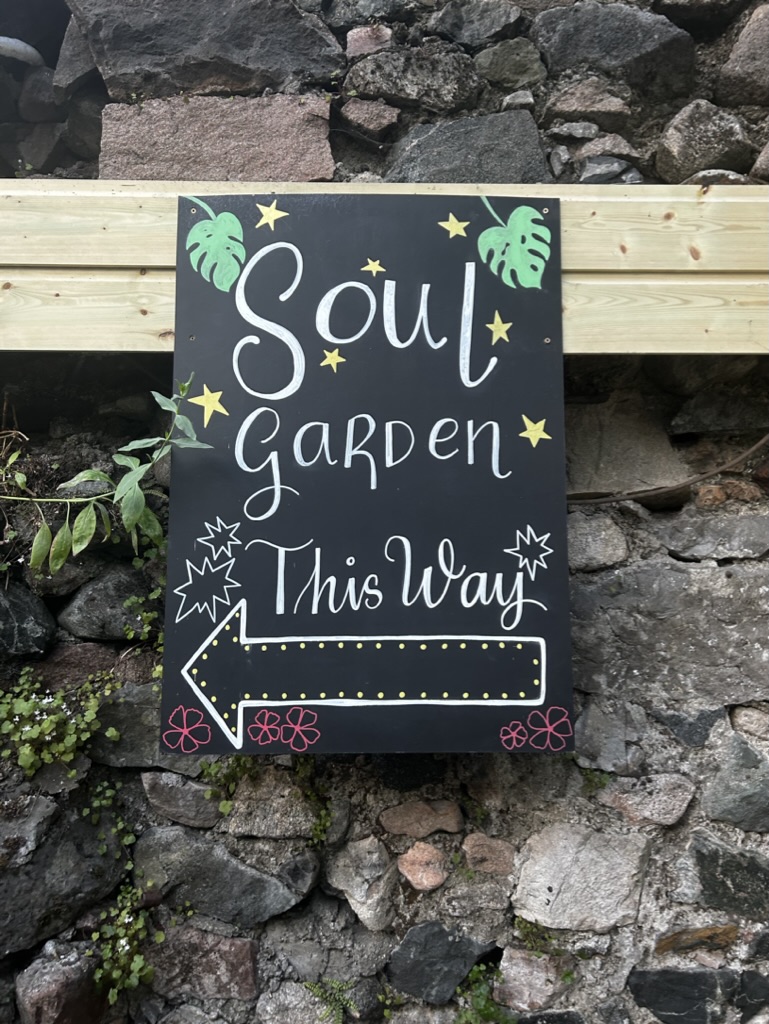 Soul
GARDEN
This Way